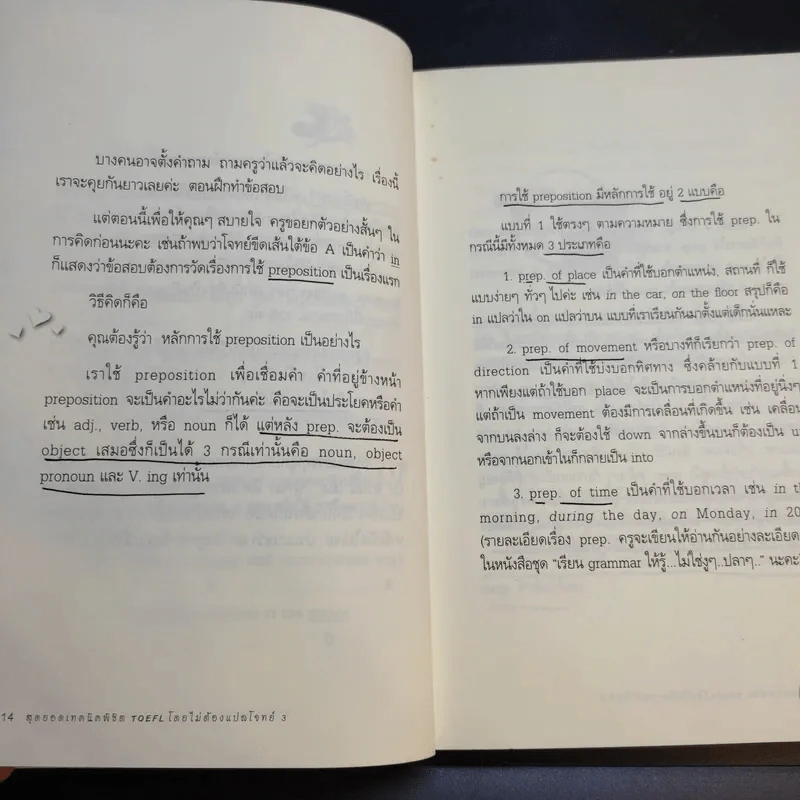 บางคนอาจตั้งคำถาม ถามครูว่าแล้วจะคิดอย่างไร เรื่องนี้
เราจะคุยกันยาวเลยค่ะ ตอนฝึกทำข้อสอบ
แต่ตอนนี้เพื่อให้คุณๆ สบายใจ ครูขอยกตัวอย่างสั้นๆ ใน
การคิดก่อนนะคะ เช่นถ้าพบว่าโจทย์ขีดเส้นใต้ข้อ A เป็นคำว่า in
ก็แสดงว่าข้อสอบต้องการวัดเรื่องการใช้ preposition เป็นเรื่องแรก
วิธีคิดก็คือ
คุณต้องรู้ว่า หลักการใช้ preposition เป็นอย่างไร
เราใช้ preposition เพื่อเชื่อมคำ คำที่อยู่ข้างหน้า
preposition จะเป็นคำอะไรไม่ว่ากันค่ะ คือจะเป็นประโยคหรือคำ
เช่น adj., verb, หรือ noun ก็ได้ แต่หลัง prep. จะต้องเป็น
object เสมอซึ่งก็เป็นได้ 3 กรณีเท่านั้นคือ noun, object
pronoun และ V. ing เท่านั้น
14 สุดยอดเทคนิคพิชิต TOEFL โดยไม่ต้องแปลโจทย์ 3
การใช้ preposition มีหลักการใช้ อยู่ 2 แบบคือ
แบบที่ 1 ใช้ตรงๆ ตามความหมาย ซึ่งการใช้ prep. ใน
กรณีนี้มีทั้งหมด 3 ประเภทคือ
1. prep. of place เป็นคำที่ใช้บอกตำแหน่ง, สถานที่ ก็ใช้
แบบง่ายๆ ทั่วๆ ไปค่ะ เช่น in the car, on the floor สรุปก็คือ
in แปลว่าใน on แปลว่าบน แบบที่เราเรียนกันมาตั้งแต่เด็กนั่นแหละ
2. prep. of movement หรือบางทีก็เรียกว่า prep. of
direction เป็นคำที่ใช้บ่งบอกทิศทาง ซึ่งคล้ายกับแบบที่ 1
หากเพียงแต่ถ้าใช้บอก place จะเป็นการบอกตำแหน่งที่อยู่นิ่งๆ
แต่ถ้าเป็น movement ต้องมีการเคลื่อนที่เกิดขึ้น เช่น เคลื่อน
จากบนลงล่าง ก็จะต้องใช้ down จากล่างขึ้นบนก็ต้องเป็น
หรือจากนอกเข้าในก็กลายเป็น into
3. prep. of time เป็นคำที่ใช้บอกเวลา เช่น in
morning, during the day, on Monday, in
(รายละเอียดเรื่อง prep. ครูจะเขียนให้อ่านกันอย่างละเอียด
ในหนังสือชุด "เรียน grammar ให้รู้...ไม่ใช่งูๆ..ปลาๆ.." นะคะ